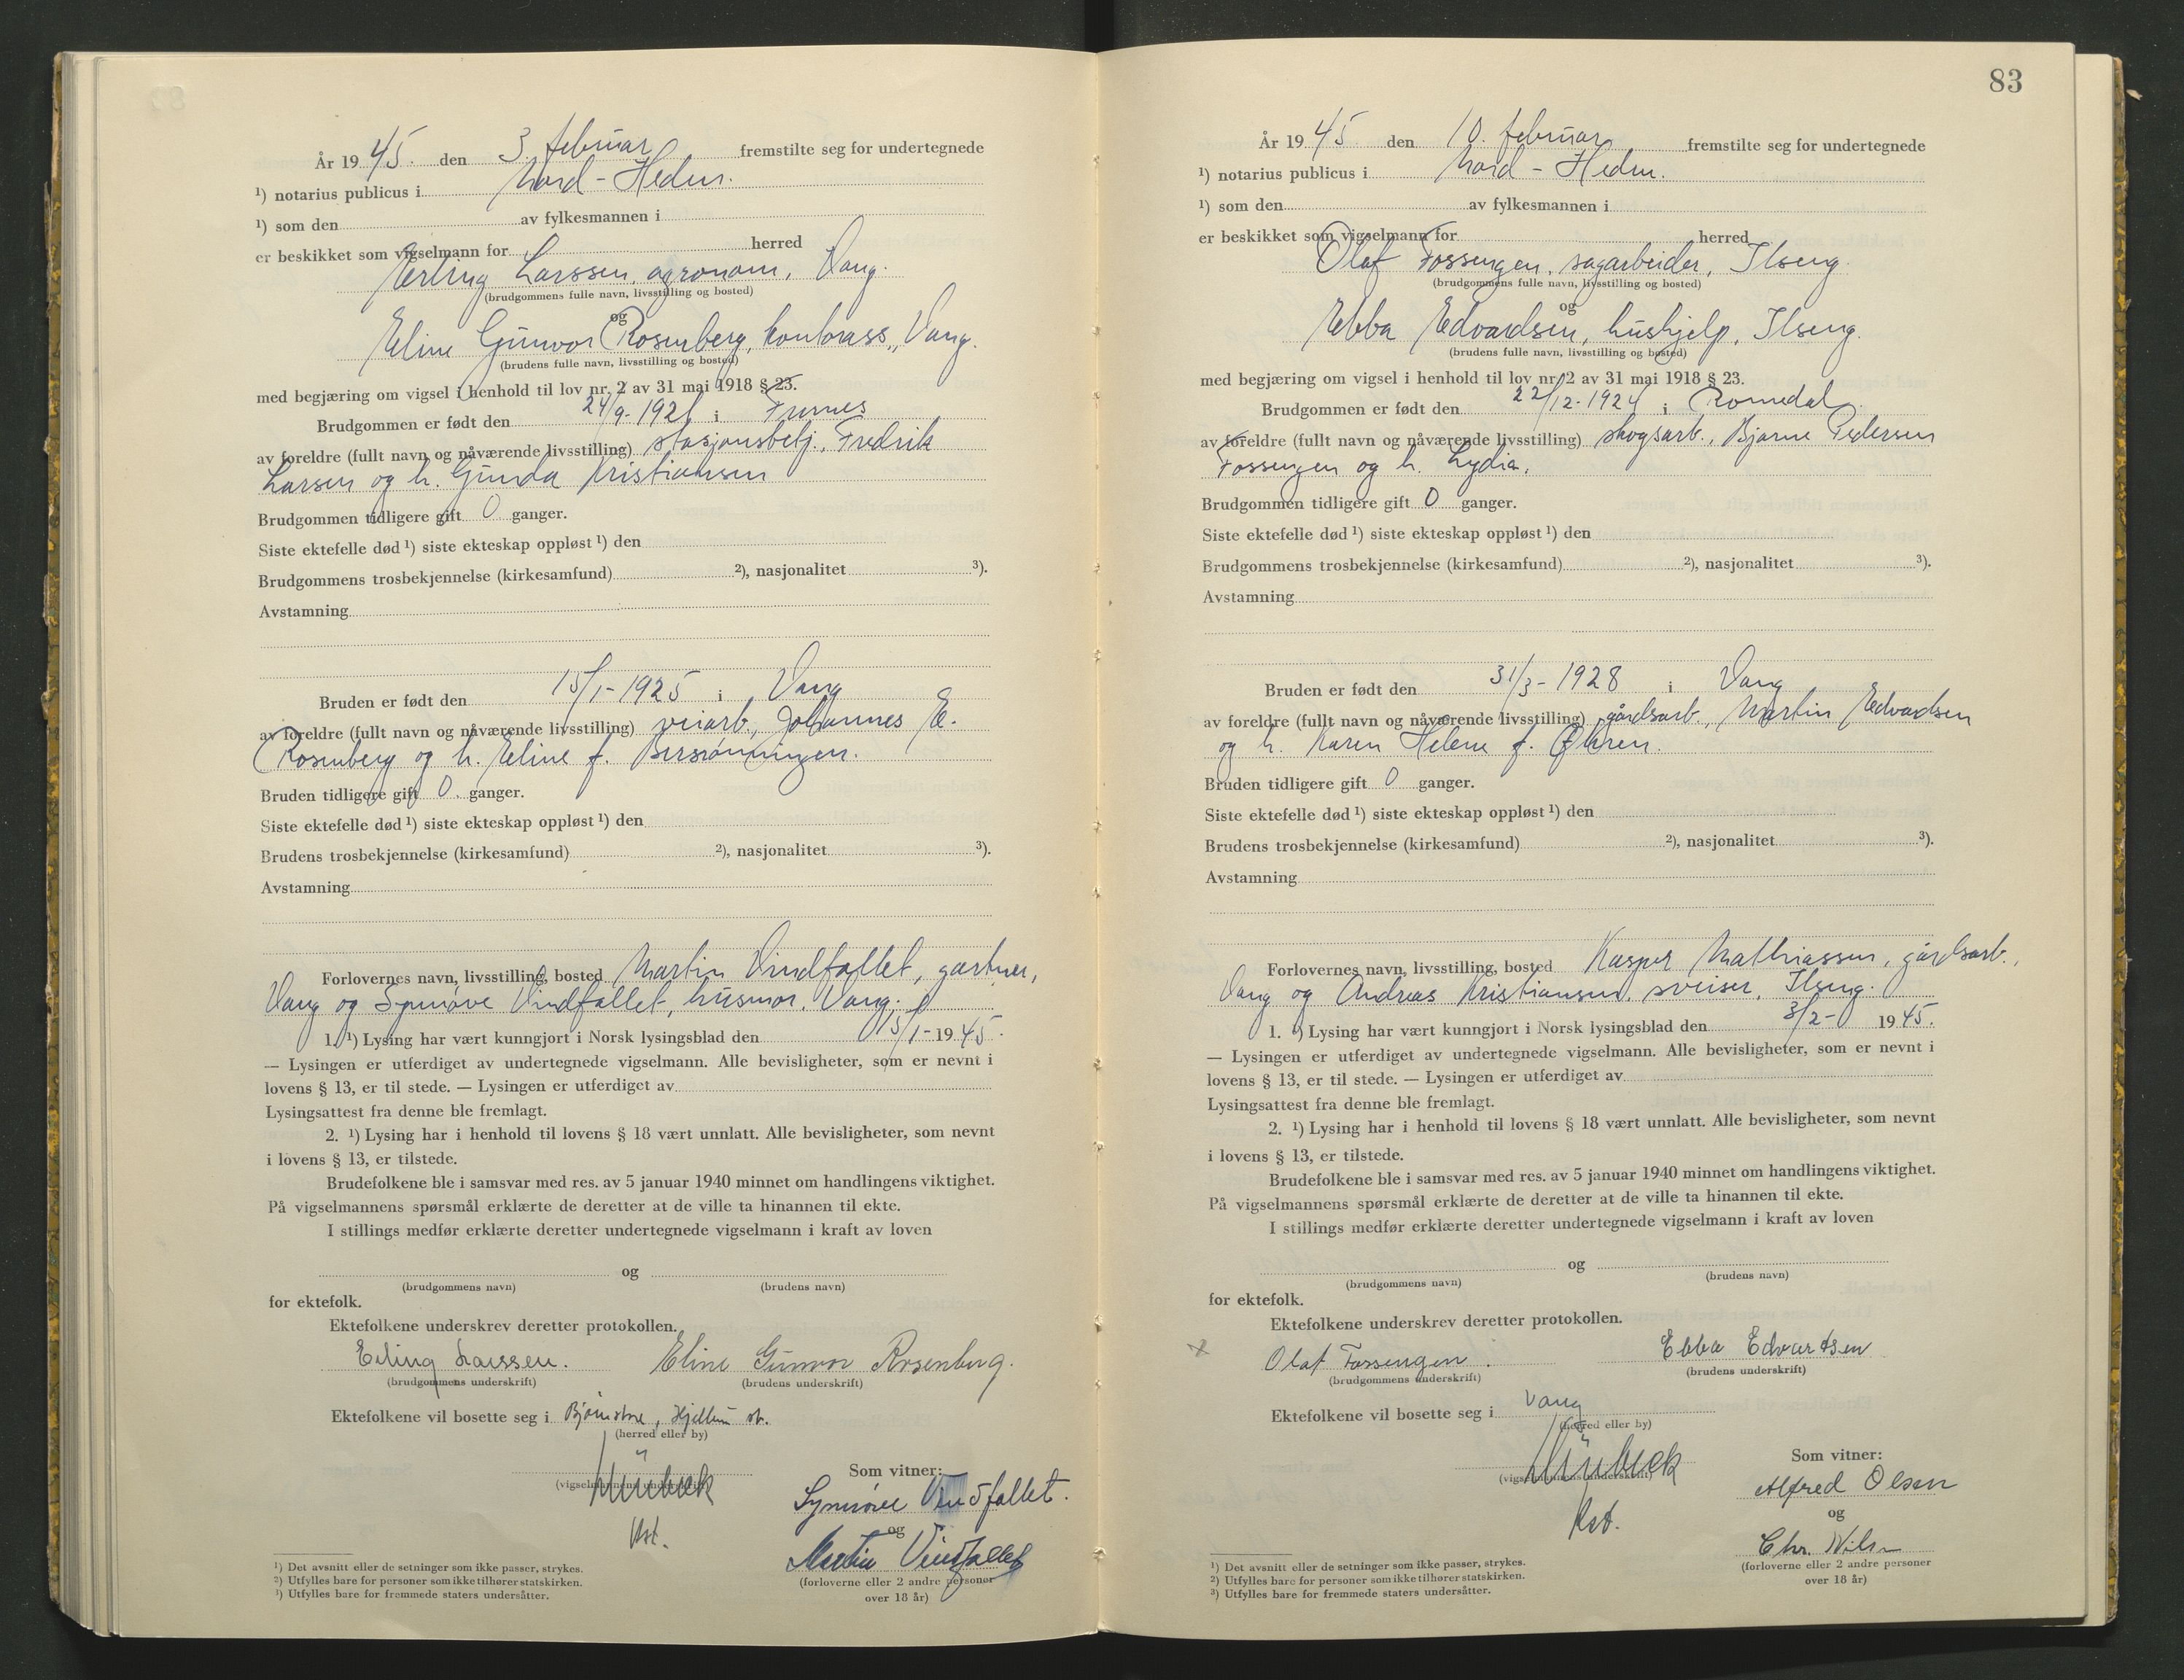 År 1945. den 3. februar fremstilte seg for undertegnede
¹) notarius publicus i Nord-Hedm.
¹) som den av fylkesmannen i
er beskikket som vigselmann for herred
Erling Larssen, agronom, Vang.
(brudgommens fulle navn, livsstilling og bosted)
og
Eline Gunvor Rosenberg, kontorass., Vang.
(brudens fulle navn, livsstilling og bosted)
med begjæring om vigsel i henhold til lov nr. 2 av 31 mai 1918 § 23.
Brudgommen er født den 24/9-1921 i Furnes
av foreldre (fullt navn og nåværende livsstilling) stasjonsbetj. Fredrik
Larsen og h. Gunda Kristiansen
Brudgommen tidligere gift 0 ganger.
Siste ektefelle død ¹) siste ekteskap oppløst ¹) den
Brudgommens trosbekjennelse (kirkesamfund) ²), nasjonalitet ³).
Avstamning
Bruden er født den 15/1-1925 i Vang
av foreldre (fullt navn og nåværende livsstilling) veiarb., Johannes E.
Rosenberg og h. Eline f.
Bruden tidligere gift 0. ganger.
Siste ektefelle død ¹) siste ekteskap oppløst ¹) den
Brudens trosbekjennelse (kirkesamfund) ²), nasjonalitet ³).
Avstamning
Forlovernes navn, livsstilling, bosted Martin Vindfallet, gartner,
Vang og Synnøve Vindfallet, husmor, Vang.
1. ¹) Lysing har vært kunngjort i Norsk lysingsblad den 15/1-1945.
— Lysingen er utferdiget av undertegnede vigselmann. Alle bevisligheter, som er nevnt i
lovens § 13, er til stede. — Lysingen er utferdiget av
Lysingsattest fra denne ble fremlagt.
2. ¹) Lysing har i henhold til lovens § 18 vært unnlatt. Alle bevisligheter, som nevnt
i lovens § 13, er tilstede.
Brudefolkene ble i samsvar med res. av 5 januar 1940 minnet om handlingens viktighet.
På vigselmannens spørsmål erklærte de deretter at de ville ta hinannen til ekte.
I stillings medfør erklærte deretter undertegnede vigselmann i kraft av loven
og
(brudgommens navn) (brudens navn)
for ektefolk.
Ektefolkene underskrev deretter protokollen.
Erling Larssen. Eline Gunvor Rosenberg.
(brudgommens underskrift) (brudens underskrift)
Ektefolkene vil bosette seg i Bjørnstne, Hjellum st.
(herred eller by)
(vigselmannens underskrift)
Som vitner:
Synnøve Vindfallet.
og
Martin Vindfallet
(forloverne eller 2 andre personer
over 18 år)
¹) Det avsnitt eller de setninger som ikke passer, strykes.
²) Utfylles bare for personer som ikke tilhører statskirken.
³) Utfylles bare for fremmede staters undersåtter.
83
År 1945 den 10. februar fremstilte seg for undertegnede
¹) notarius publicus i Nord-Hedm.
¹) som den av fylkesmannen i
er beskikket som vigselmann for herred
Olaf Fossengen, sagarbeider, Ilseng.
(brudgommens fulle navn, livsstilling og bosted)
og
Ebba Edvardsen, hushjelp, Ilseng.
(brudens fulle navn, livsstilling og bosted)
med begjæring om vigsel i henhold til lov nr. 2 av 31 mai 1918 § 23.
Brudgommen er født den 22/12-1924 i Romedal
av foreldre (fullt navn og nåværende livsstilling) skogsarb., Bjarne Pedersen
Fossengen og h. Lydia.
Brudgommen tidligere gift 0 ganger.
Siste ektefelle død ¹) siste ekteskap oppløst ¹) den
Brudgommens trosbekjennelse (kirkesamfund) ²), nasjonalitet ³).
Avstamning
Bruden er født den 31/3-1928 i Vang
av foreldre (fullt navn og nåværende livsstilling) gårdsarb., Martin Edvardsen
og h. Karen Helene f. Øhren.
Bruden tidligere gift 0 ganger.
Siste ektefelle død ¹) siste ekteskap oppløst ¹) den
Brudens trosbekjennelse (kirkesamfund) ²), nasjonalitet ³).
Avstamning
Forlovernes navn, livsstilling, bosted Kasper Mathiassen, gårdsarb.,
Vang og Andreas Kristiansen, sveiser, Ilseng.
1. ¹) Lysing har vært kunngjort i Norsk lysingsblad den 3/2- 1945.
— Lysingen er utferdiget av undertegnede vigselmann. Alle bevisligheter, som er nevnt i
lovens § 13, er til stede. — Lysingen er utferdiget av
Lysingsattest fra denne ble fremlagt.
2. ¹) Lysing har i henhold til lovens § 18 vært unnlatt. Alle bevisligheter, som nevnt
i lovens § 13, er tilstede.
Brudefolkene ble i samsvar med res. av 5 januar 1940 minnet om handlingens viktighet.
På vigselmannens spørsmål erklærte de deretter at de ville ta hinannen til ekte.
I stillings medfør erklærte deretter undertegnede vigselmann i kraft av loven
og
(brudgommens navn) (brudens navn)
for ektefolk.
Ektefolkene underskrev deretter protokollen.
Olaf Fossengen. Ebba Edvardsen
(brudgommens underskrift) (brudens underskrift)
Ektefolkene vil bosette seg i Vang
(herred eller by)
(vigselmannens underskrift)
Som vitner:
Alfred Olsen
og
Chr. Nilsen
(forloverne eller 2 andre personer
over 18 år)
¹) Det avsnitt eller de setninger som ikke passer, strykes.
²) Utfylles bare for personer som ikke tilhører statskirken.
³) Utfylles bare for fremmede staters undersåtter.